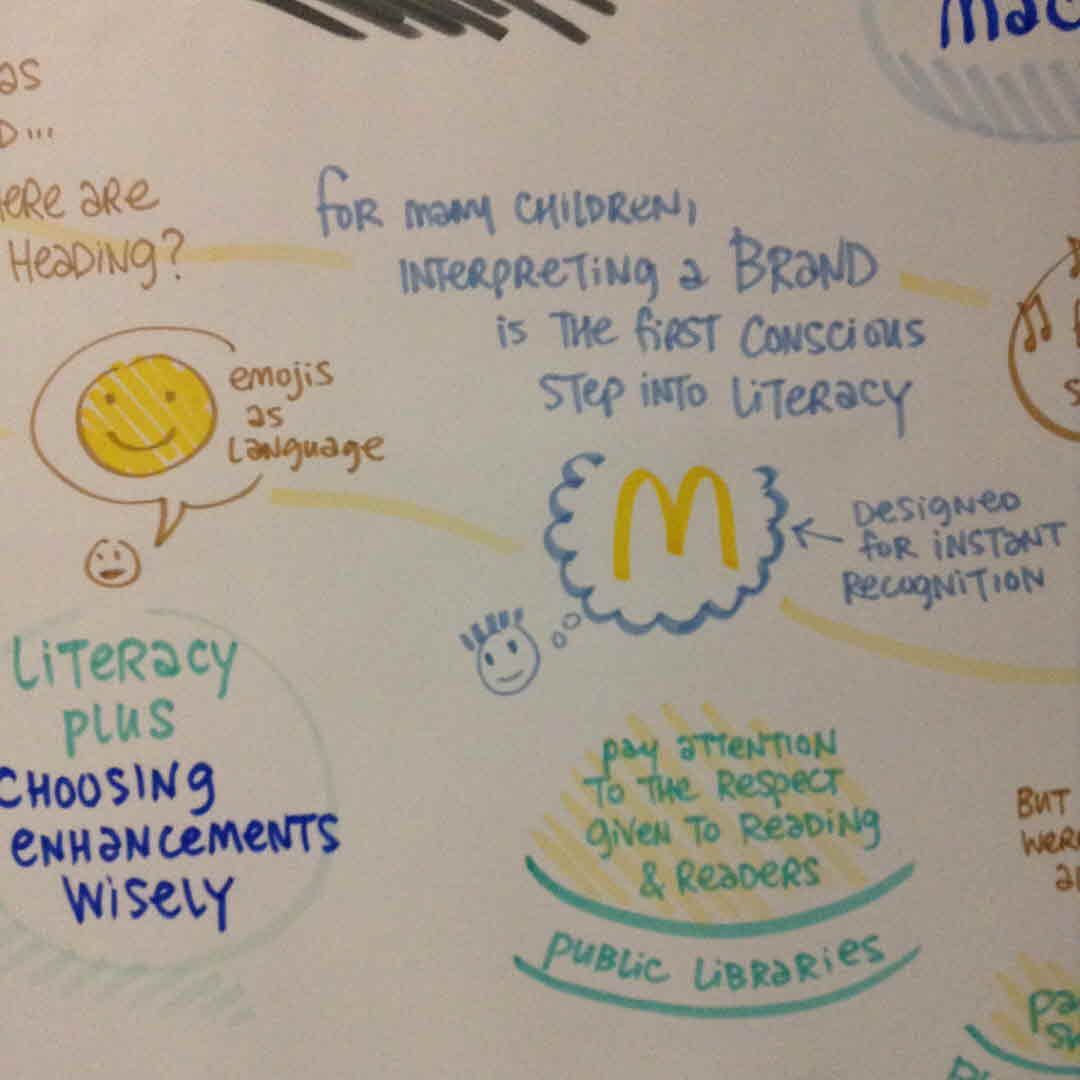 as
ERE ARE
HEADING?
FOR MANY CHILDREN,
INTERPRETING A BRAND
IS THE FIRST CONSCIOUS
STEP INTO LITERACY
emojis
as
Language
M
DESIGNED
FOR INSTANT
RECOGNITION
LITERACY
PLUS
CHOOSING
ENHANCEMENTS
WISELY
pay ATTENTION
TO THE RESPECT
GIVEN TO READING
& READERS
PUBLIC LIBRARIES
BUT
WER